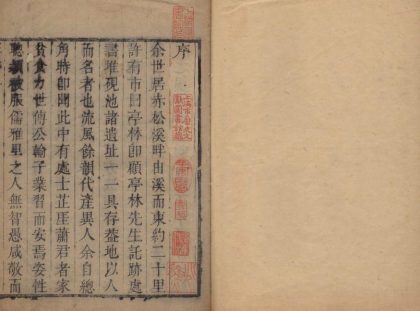 序
余世居赤松溪畔由溪而東約二十里
許有市曰亭林卽顧亭林先生託跡處
書堆硯池諸遺址一一具存蓋地以人
而名者也流風餘韻代産異人余自總
角時卽聞此中有處士芷厓蕭君者家
貧食力世傳公輸子業習而安焉姿性
聰穎被服儒雅里之人無智愚咸敬而